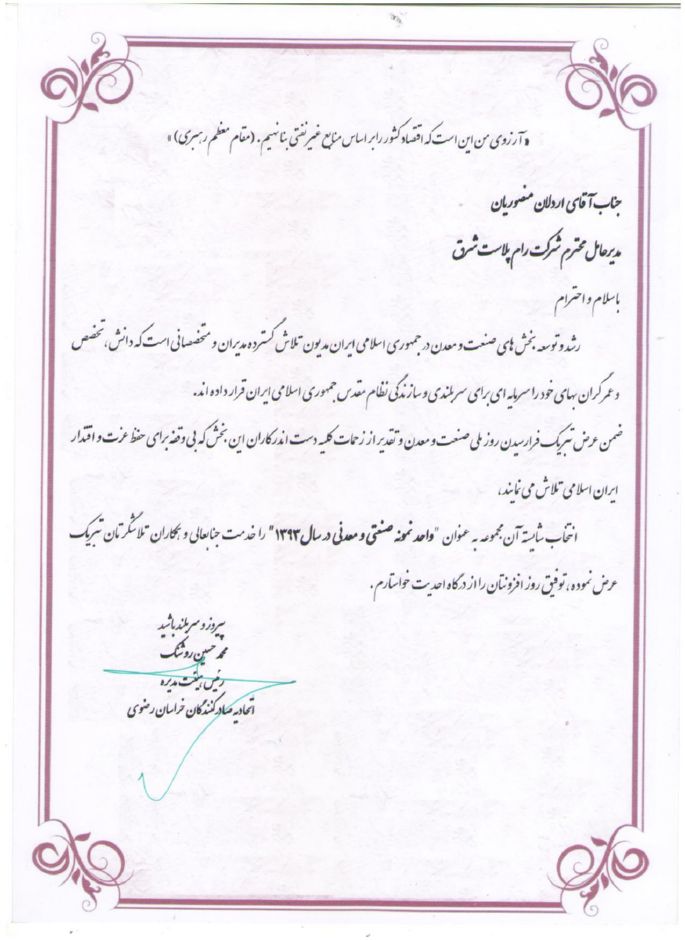 «آرزوی من این است که اقتصاد کشور را بر اساس منابع غیر نفتی بنا نهیم. (مقام معظم رهبری)»
جناب آقای اردلان منصوریان
مدیرعامل محترم شرکت رام پلاست شرق
باسلام و احترام
رشد و توسعه بخش های صنعت و معدن در جمهوری اسلامی ایران مدیون تلاش گسترده مدیران و متخصصانی است که دانش، تخصص
و عمر گران بهای خود را سرمایه ای برای سربلندی و سازندگی نظام مقدس جمهوری اسلامی ایران قرار داده اند.
ضمن عرض تبریک فرارسیدن روز ملی صنعت و معدن و تقدیر از زحمات کلیه دست اندرکاران این بخش که بی وقفه برای حفظ عزت و اقتدار
ایران اسلامی تلاش می نمایند،
انتخاب شایسته آن مجموعه به عنوان "واحد نمونه صنعتی و معدنی در سال ۱۳۹۳" را خدمت جنابعالی و همکاران تلاشگرتان تبریک
عرض نموده، توفیق روز افزونتان را از درگاه احدیت خواستارم.
پیروز و سربلند باشید
محمد حسین روشنک
رئیس هیئت مدیره
اتحادیه صادرکنندگان خراسان رضوی